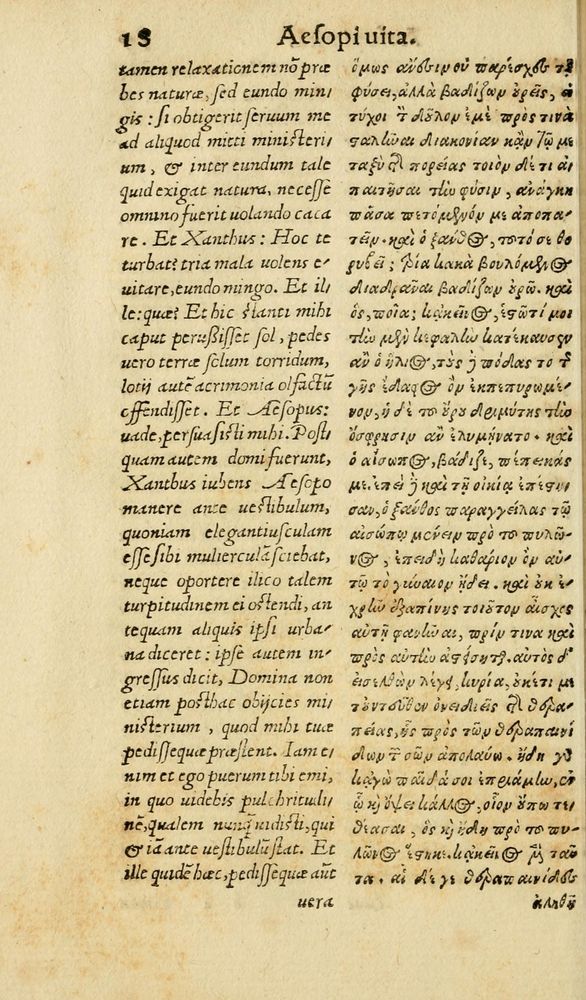 18 Aeſopi uita.
tamen relaxationem nõ præ
bes naturæ, ſed eundo min
gis: ſi obtigerit ſeruum me
ad aliquod mitti miniſteri
um, & inter eundum tale
quid exigat natura, neceſſe
omnino fuerit uolando caca
re. Et Xanthus: Hoc te
turbat? tria mala uolens e-
uitare, eundo mingo. Et il
le: quæ? Et hic ſtanti mihi
caput peruſſiſſet ſol, pedes
uero terræ ſolum torridum,
lotij autẽ acrimonia olfactũ
offendiſſet. Et Aeſopus:
uade, perſuaſiſti mihi. Poſt
quam autem domi fuerunt,
Xanthus iubens Aeſopo
manere ante ueſtibulum,
quoniam elegantiuſculam
eſſe ſibi mulierculã ſciebat,
neque oportere ilico talem
turpitudinem ei oſtendi, an
tequam aliquis ipſi urba-
na diceret: ipſe autem in-
greſſus dicit, Domina non
etiam poſthac obijcies mi
niſterium, quod mihi tuæ
pediſſequæ præſtent. Iam e-
nim et ego puerum tibi emi,
in quo uidebis pulchritudi
nẽ, qualem nunq̃ uidiſti, qui
& iã ante ueſtibulũ ſtat. Et
ille quidẽ hæc, pediſſequæ aũt
uera
ὅμως ἄνεσιν οὐ παρέσχες τῇ
φύσει, ἀλλὰ βαδίζων οὐρεῖς, εἰ
τύχοι τ̃ δοῦλον ἐμὲ πρός τινα
σταλῆναι διακονίαν κἀν τῷ με
ταξὺ τῆς πορείας τοιόν δέ τι ἀ
παιτῆσαι τὴν φύσιν, ἀνάγκη
πᾶσα πετόμενόν με ἀποπα
τεῖν. καὶ ὁ ξάνθος, τοῦτό σε θο
ρυβεῖ; τρία κακὰ βουλόμενος
διαδρᾶναι βαδίζων οὐρῶ. καὶ
ὅς, ποῖα; κἀκεῖνος, ἑστῶτί μοι
τὴν μὲν κεφαλὴν κατέκαυσεν
ἂν ὁ ἥλιος, τοὺς δὲ πόδας τὸ τ̃
γῆς ἔδαφος ὂν ἐκπεπυρωμέ-
νον, ἡ δὲ τοῦ οὔρου δριμύτης τὴν
ὄσφρησιν ἂν ἐλυμήνατο. καὶ
ὁ αἴσωπος, βάδιζε, πέπεικάς
με. ἐπεὶ δὲ καὶ τῇ οἰκίᾳ ἐπέστη
σαν, ὁ ξάνθος παραγγείλας τῷ
αἰσώπῳ μένειν πρὸ τοῦ πυλῶ-
νος, ἐπειδὴ καθάριον ὂν αὑ
τῷ τὸ γύναιον ᾔδει. καὶ οὐκ ἐ
χρῆν ἐξαπίνης τοιοῦτον αἶσχος
αὐτῇ φανῆναι, πρίν τινα καὶ
πρὸς αὐτὴν ἀστείσηται. αὐτὸς δ'
εἰσελθὼν λέγει, κυρία, οὐκέτι με
τοὐντεῦθεν ὀνειδιεῖς τῆς θερα-
πείας, ἧς πρὸς τῶν θεραπαινί
δων τ̃ σῶν ἀπολαύω. ἤδη γὰρ
κἀγὼ παῖδά σοι ἐπριάμην, ἐν
ᾧ καὶ ὄψει κάλλος, οἷον οὔπω τε-
θέασαι, ὃς καὶ ἤδη πρὸ τοῦ πυ-
λῶνος ἕστηκε. κἀκεῖνος μὲν ταῦ
τα. αἱ δέ γε θεραπαινίδες
ἀληθῆ